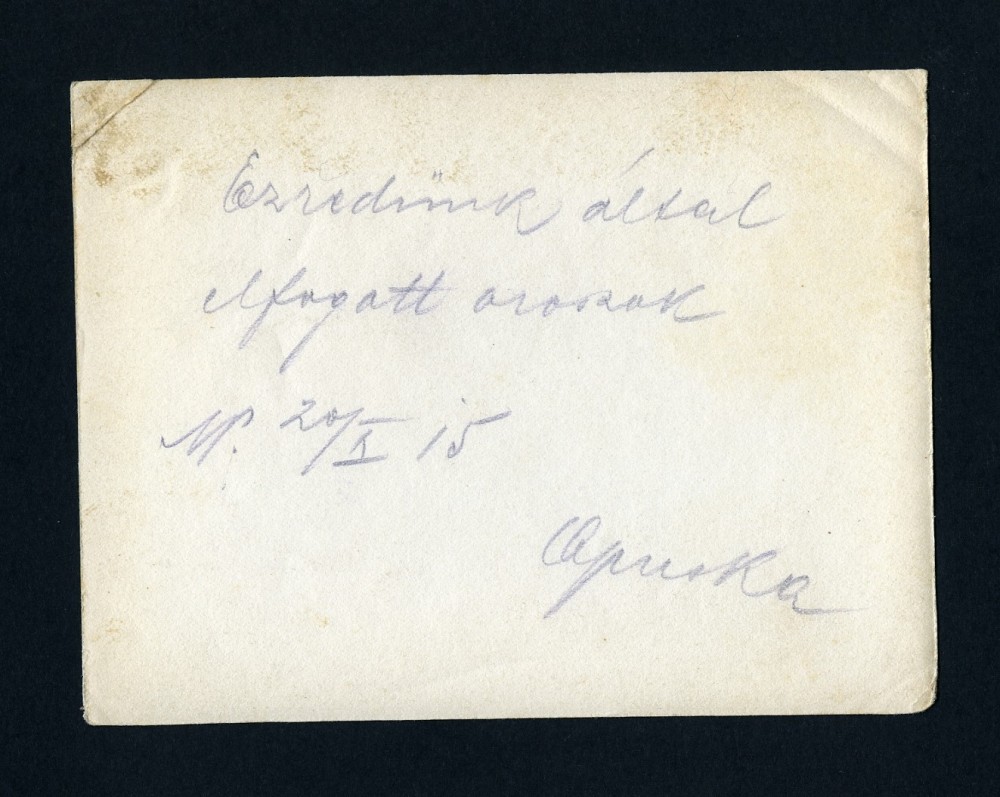 Ezredünk által
elfogatt oroszok
20/X 15
Apuska